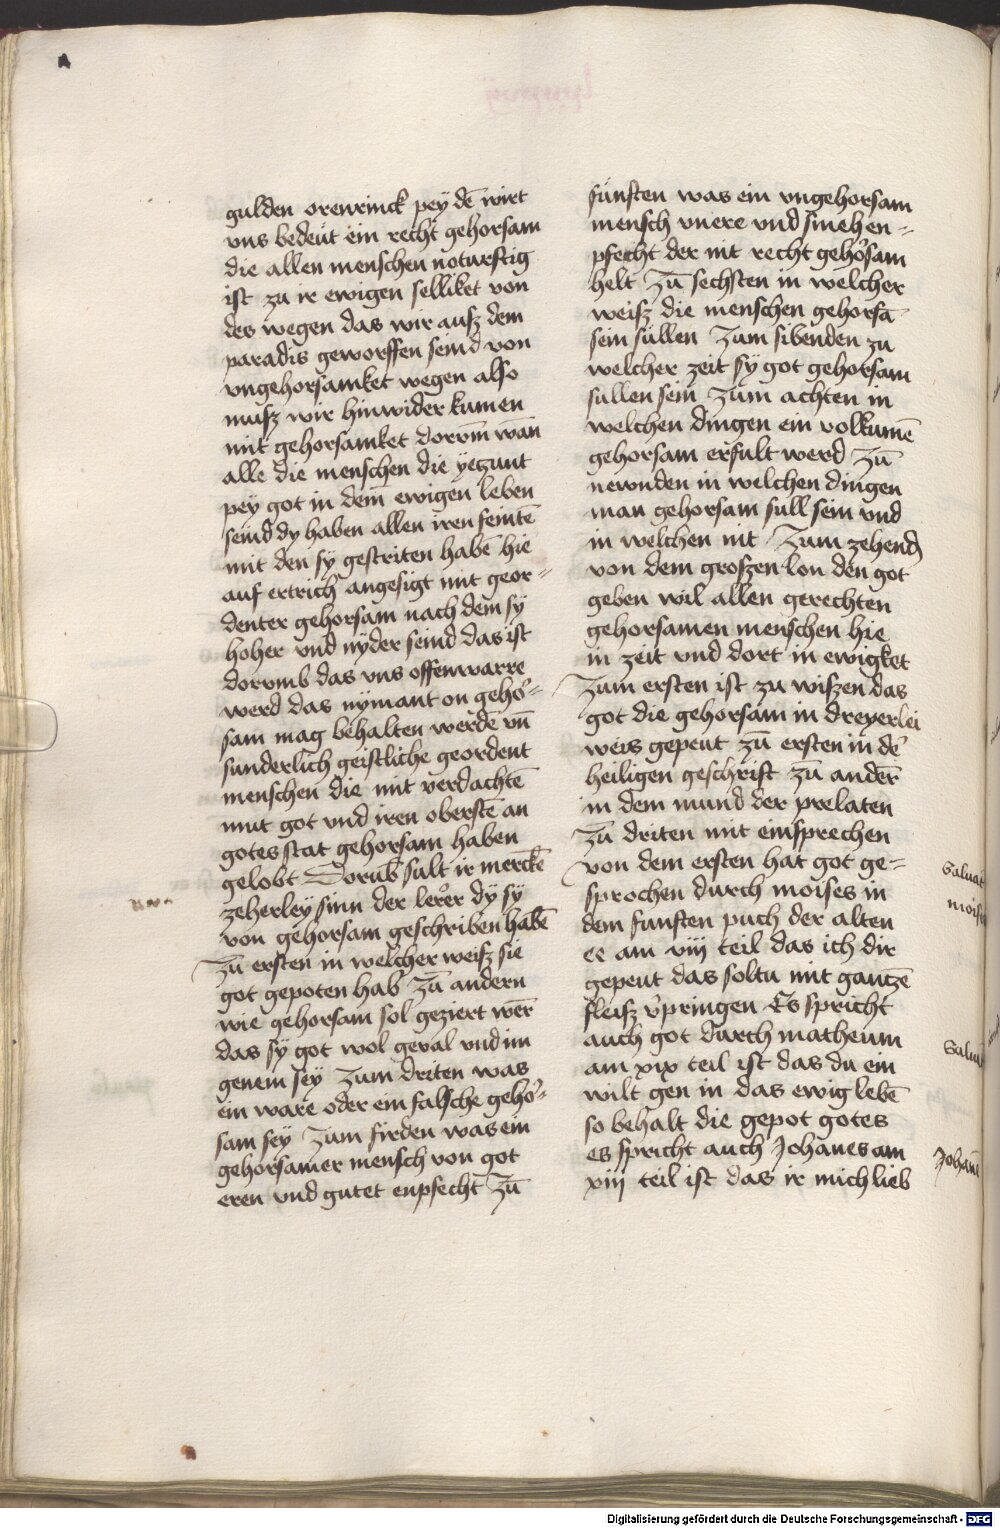 gulden orewrinck pey dē wirt
vns bedeüt ein recht gehorsam
die allen menschen noturftig
ist zu ir ewigen selliket von
des wegen das wir aufz dem
paradis geworffen seind von
vngehorsamket wegen also
musz wir hinwider kumen
mit gehorsamket dorvm̄ wān
alle die menschen die ÿetzunt
pey got in dem̄ ewigen leben
seind dy haben allen iren feintē
mit den sy gestriten habē hie
auf ertrich angesigt mit geor=
denter gehorsam nach dem sy
hoher vnd nyder seind das ist
dorvmb das vns offenwarre
werd das nymant on gehor=
sam mag behalten werdē vn̄
sunderlich geistliche geordent
menschen die mit verdachtē
mut got vnd iren oberstē an
gotes stat gehorsam haben
gelobt Dorūb sult ir merckē
zeherley sinn der lerer dÿ sy
von gehorsam geschriben habē
Zū ersten in welcher weisz sie
got gepoten hab Zū andern
wie gehorsam sol geziert wēr
das sÿ got wol geval vnd im
genem sey Zum driten was
ein ware oder ein falsche gehor=
sam sey Zum firden was ein
gehorsamer mensch von got
eren vnd gutet enpfecht Zū
fünften was ein vngehorsam
mensch vnere vnd smehen=
pfecht der nit recht gehorsam
helt Zū sechsten in welcher
weisz die menschen gehorsā
sein süllen Zum sibenden zu
welcher zeit sÿ got gehorsam
sullen sein Zum achten in
welchen dingen ein volkumē
gehorsam erfult werd Zū
newnden in welchen dingen
man gehorsam sull sein vnd
in welchen nit Zum zehend
von dem groszen lon den got
geben wil allen gerechten
gehorsamen menschen hie
in zeit vnd dort in ewigket
Zum ersten ist zu wiszen das
got die gehorsam in dreyerlei
weis gepeut zū ersten in der
heiligen geschrift zū andēr
in dem mund der prelaten
Zū driten mit einsprechen
von dem ersten hat got ge=
sprochen durch moises in
dem funften puch der alten
ee am viij teil das ich dir
gepeut das soltu mit gantzē
fleisz v̓pringen Es spricht
auch got durch matheum
am xix teil ist das du ein
wilt gen in das ewig lebē
so behalt die gepot gotes
es spricht auch Johanes am
xiij teil ist das ir mich lieb
Saluat
mois
Salua
Johan̄
Digitalisierung gefördert durch die Deutsche Forschungsgemeinschaft - DFG